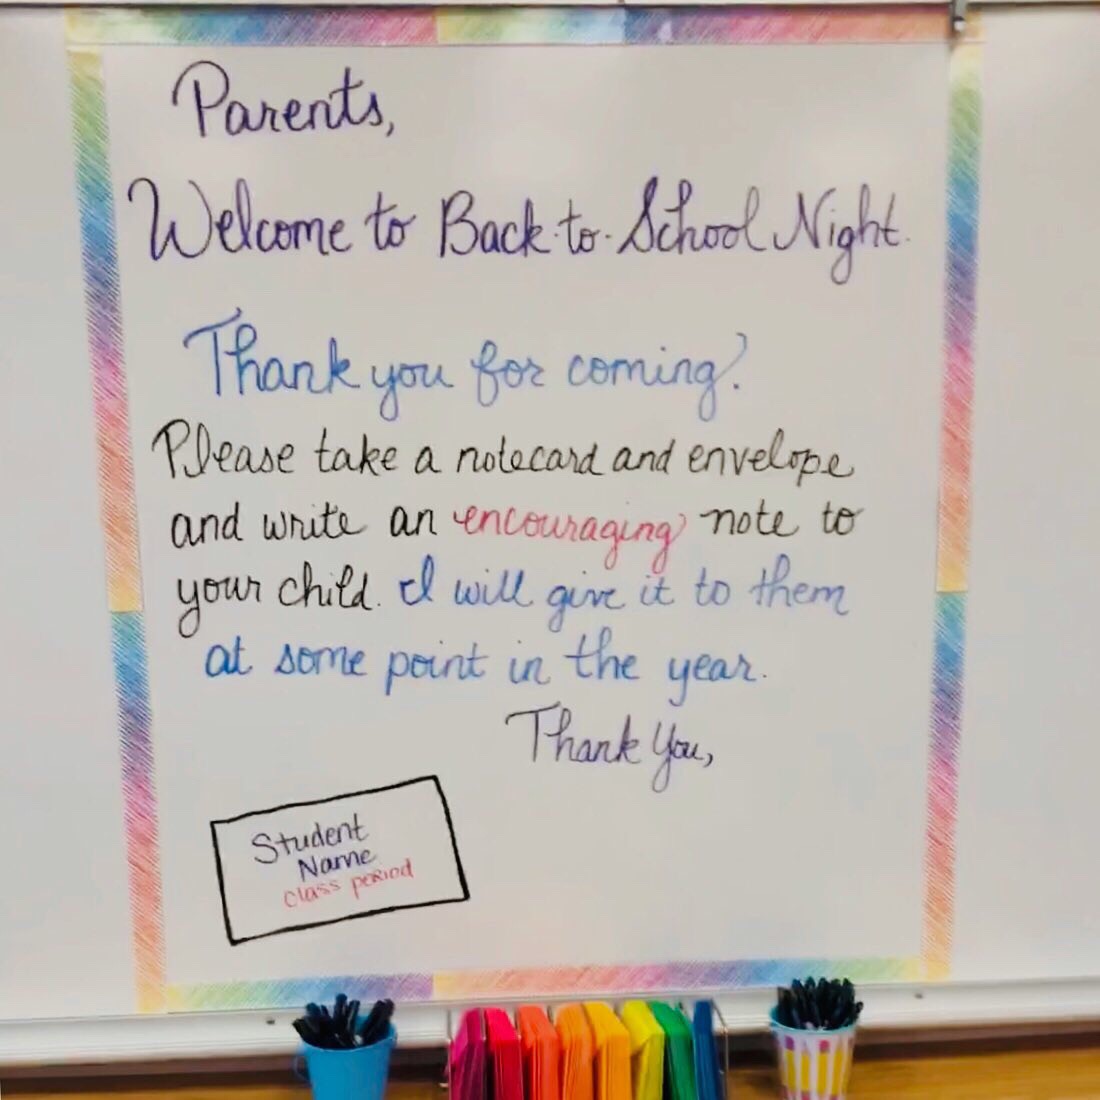 Parents,
Welcome to Back-to-School Night.
Thank you for coming!
Please take a notecard and envelope
and write an encouraging note to
your child. I will give it to them
at some point in the year.
Thank You,
Student
Name
Class period